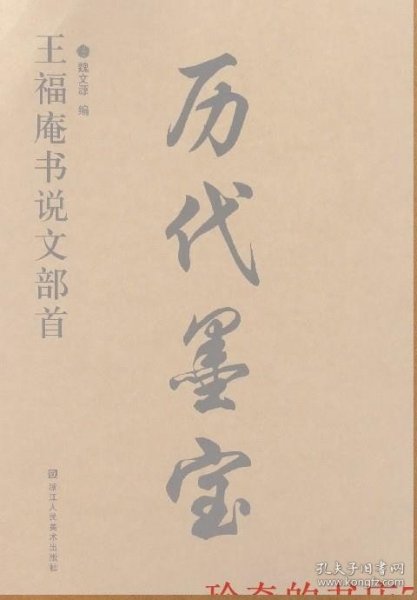 历代墨宝
魏文源 编
王福庵书说文部首
浙江人民美术出版社
孔夫子旧书网
珍奇的书店